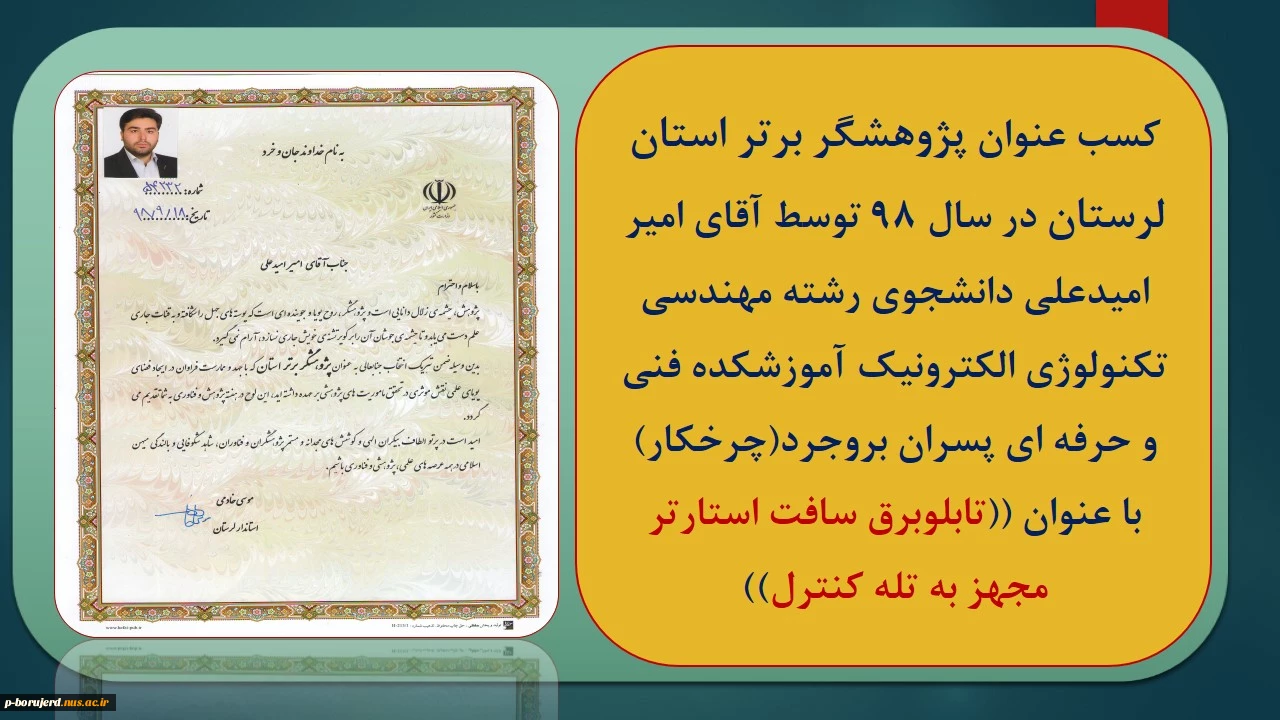 کسب عنوان پژوهشگر برتر استان
لرستان در سال ۹۸ توسط آقای امیر
امیدعلی دانشجوی رشته مهندسی
تکنولوژی الکترونیک آموزشکده فنی
و حرفه ای پسران بروجرد(چرخکار)
با عنوان ((تابلوبرق سافت استارتر
مجهز به تله کنترل))
به نام خداوند جان و خرد
شماره: ۵۴۲۳۲
تاریخ: ۹۸/۹/۱۸
جناب آقای امیر امیدعلی
باسلام و احترام
پژوهش، چشمه‌ی زلال دانایی است و پژوهشگر، روح پویا و جوینده ای است که پوسته های جهل را شکافته و به قنات جاری
علم دست می یابد و تا چشمه ی جوشان آن را بر کویر تشنه ی خویش جاری نسازد، آرام نمی گیرد.
بدین وسیله ضمن تبریک، انتخاب جنابعالی به عنوان پژوهشگر برتر استان که با جهد و ممارست فراوان در ایجاد فضای
پویای علمی نقش موثری در تحقق ماموریت های پژوهشی بر عهده داشته اید، این لوح در هفته پژوهش و فناوری به شما تقدیم می
گردد.
امید است در پرتو الطاف بیکران الهی و کوشش های مجدانه و مستمر پژوهشگران و فناوران، شاهد شکوفایی و بالندگی میهن
اسلامی در همه عرصه های علمی، پژوهشی و فناوری باشیم.
موسی خادمی
استاندار لرستان
p-borujerd.nus.ac.ir